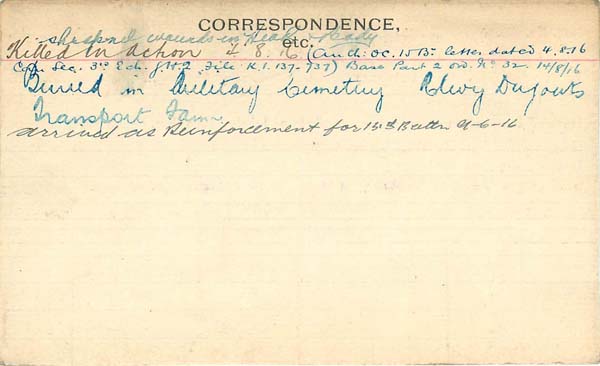 CORRESPONDENCE,
etc.
shrapnel wounds in Head & Body
Killed in Action 4.8.16 (Auth: OC. 15 Bn. letter dated 4.8.16
Sec. 3rd Ech. G.H.Q File K.1. 137. 737) Base Part 2 ord. No 32. 14/8/16
Buried in Military Cemetery Rlwy Dugouts
Transport Farm
arrived as Reinforcement for 15th Battn 9-6-16